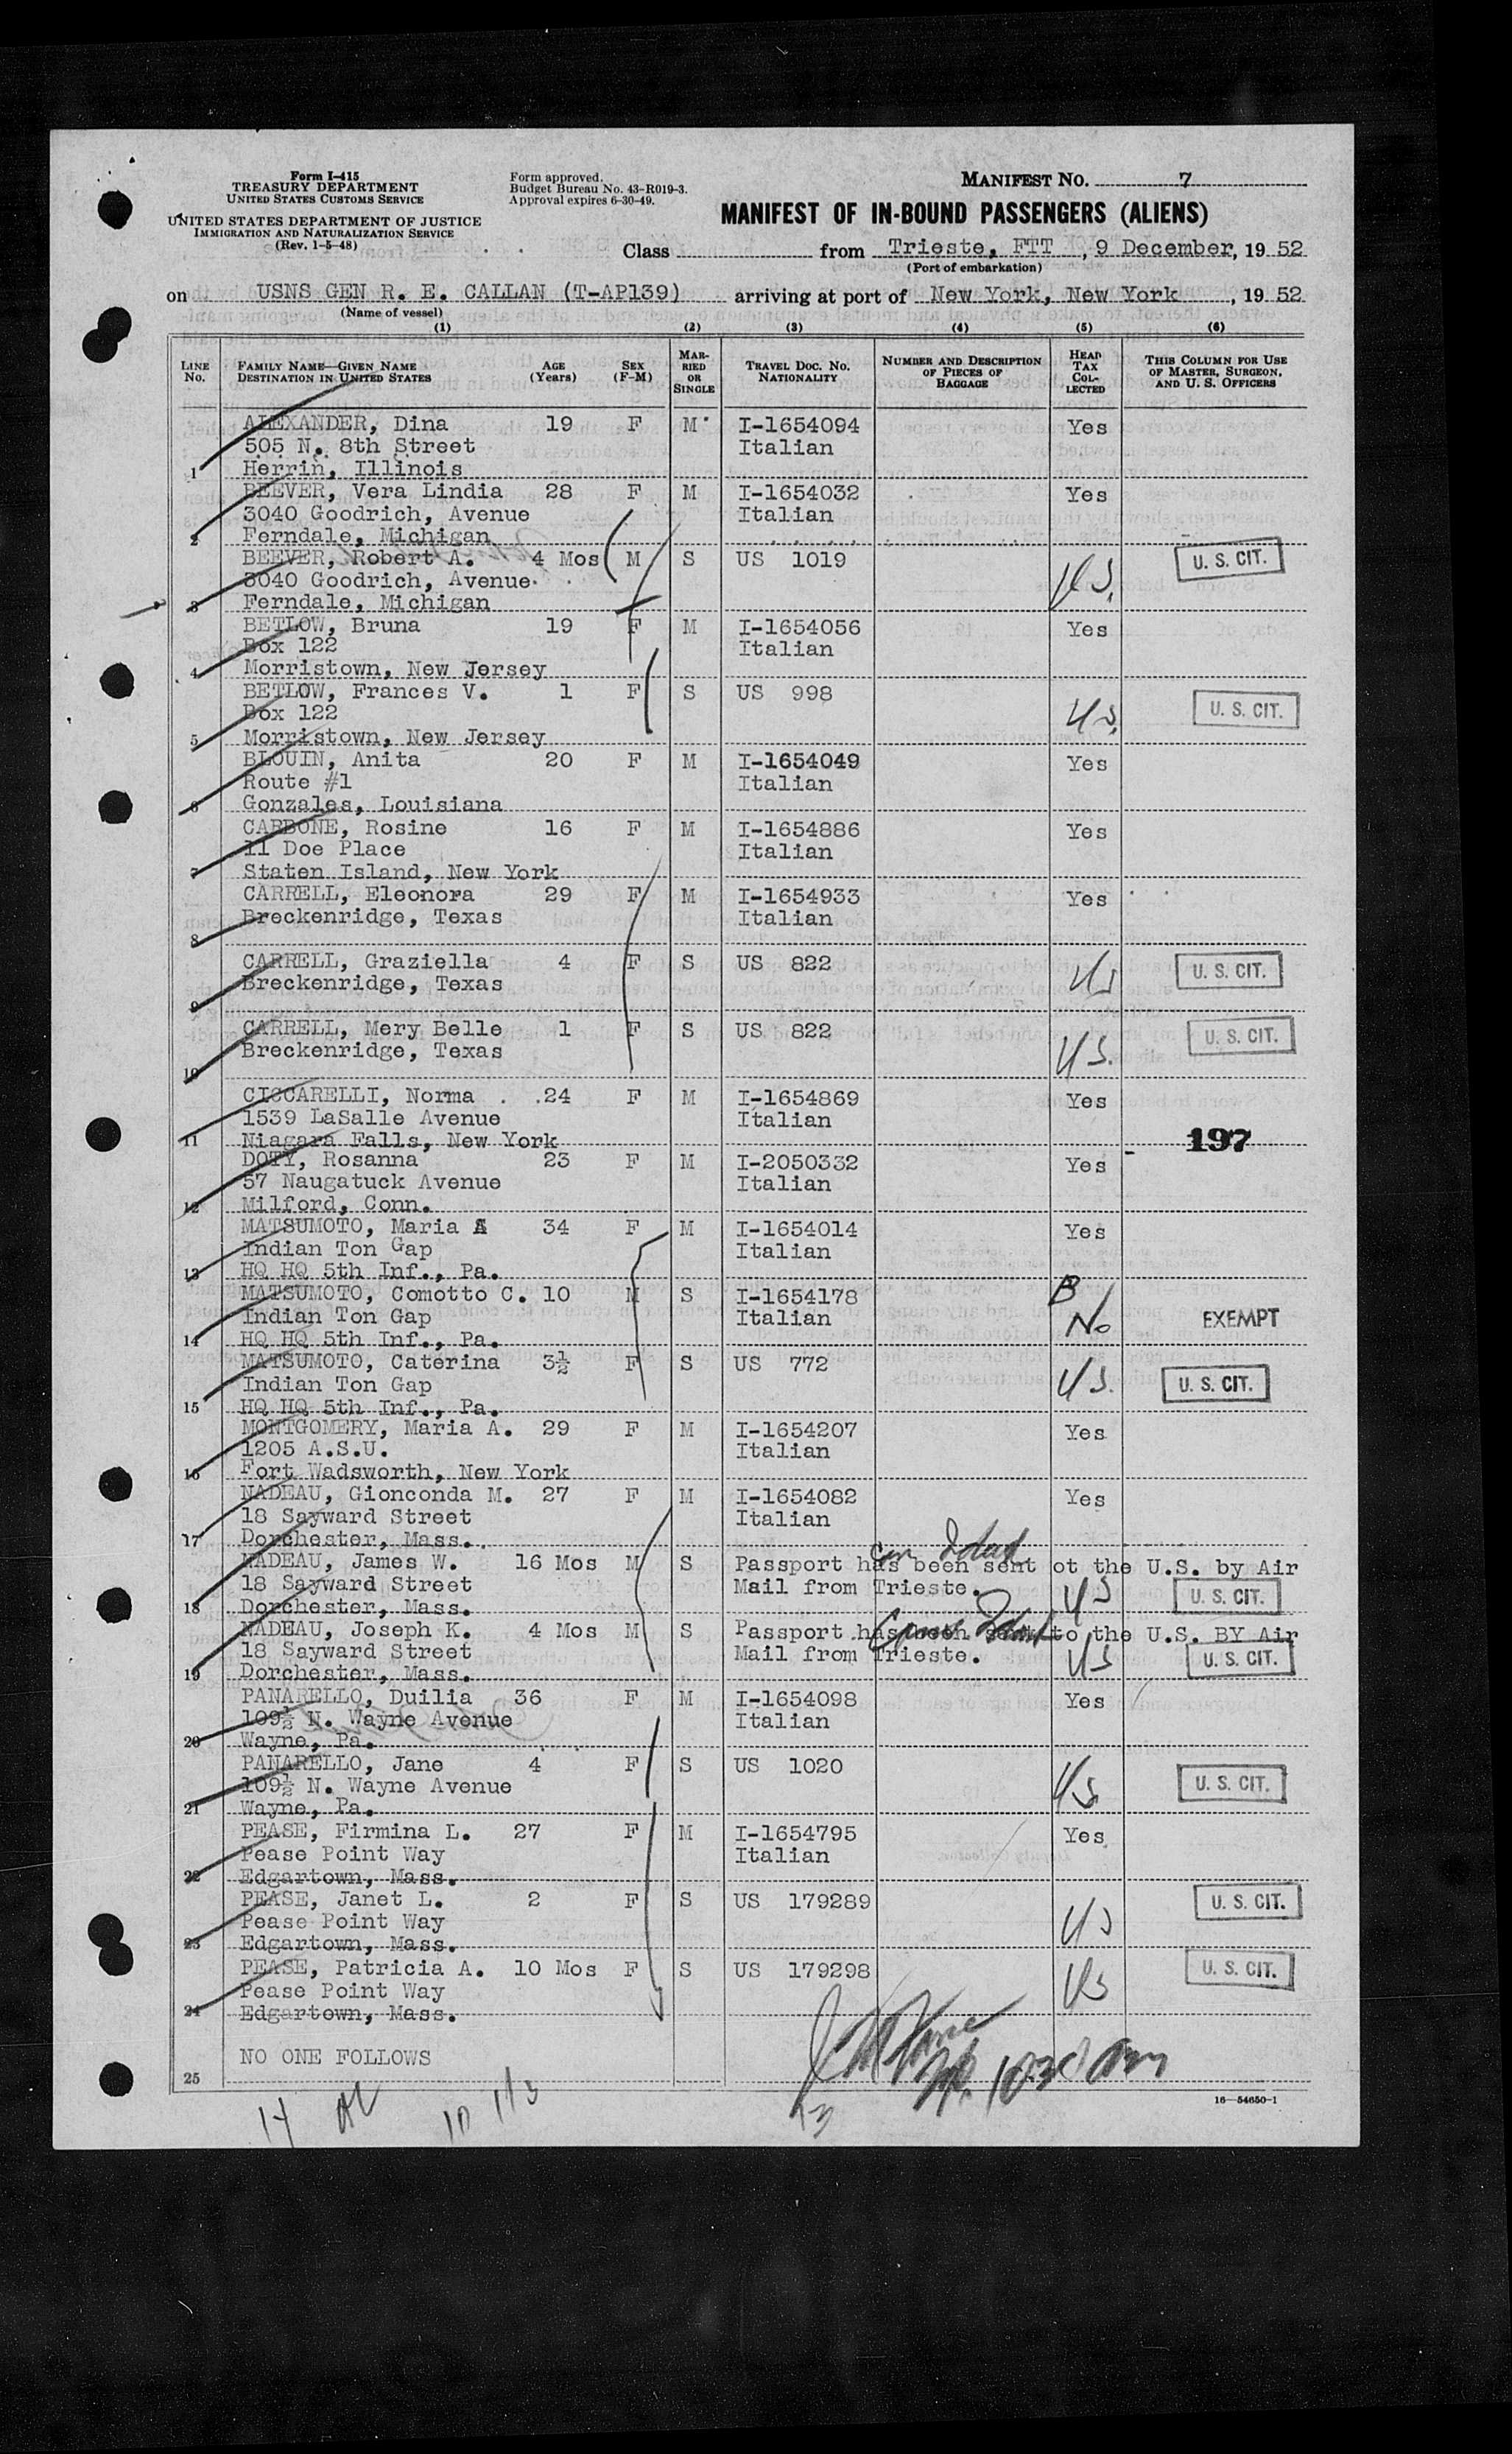 Form I-415
TREASURY DEPARTMENT
UNITED STATES CUSTOMS SERVICE
UNITED STATES DEPARTMENT OF JUSTICE
IMMIGRATION AND NATURALIZATION SERVICE
(Rev. 1-5-48)
Form approved.
Budget Bureau No. 43-R019-3.
Approval expires 6-30-49.
MANIFEST NO. 7
MANIFEST OF IN-BOUND PASSENGERS (ALIENS)
Class from Trieste, FTT, 9 December, 19 52
(Port of embarkation)
on USNS GEN R. E. CALLAN (T-AP139) arriving at port of New York, New York, 19 52
(Name of vessel)
(1) (2) (3) (4) (5) (6)
LINE No. FAMILY NAME—GIVEN NAME DESTINATION IN UNITED STATES AGE (Years) SEX (F-M) MARRIED OR SINGLE TRAVEL DOC. NO. NATIONALITY NUMBER AND DESCRIPTION OF PIECES OF BAGGAGE HEAD TAX COLLECTED THIS COLUMN FOR USE OF MASTER, SURGEON, AND U. S. OFFICERS
ALEXANDER, Dina 19 F M I-1654094 Yes
505 N. 8th Street Italian
1 Herrin, Illinois
BEEVER, Vera Lindia 28 F M I-1654032 Yes
3040 Goodrich, Avenue Italian
2 Ferndale, Michigan
BEEVER, Robert A. 4 Mos M S US 1019 US. U. S. CIT.
3040 Goodrich, Avenue
3 Ferndale, Michigan
BETLOW, Bruna 19 F M I-1654056 Yes
Box 122 Italian
4 Morristown, New Jersey
BETLOW, Frances V. 1 F S US 998 US. U. S. CIT.
Box 122
5 Morristown, New Jersey
BLOUIN, Anita 20 F M I-1654049 Yes
Route #1 Italian
6 Gonzales, Louisiana
CARBONE, Rosine 16 F M I-1654886 Yes
11 Doe Place Italian
7 Staten Island, New York
CARRELL, Eleonora 29 F M I-1654933 Yes
Breckenridge, Texas Italian
8
CARRELL, Graziella 4 F S US 822 US U. S. CIT.
Breckenridge, Texas
9
CARRELL, Mery Belle 1 F S US 822 US. U. S. CIT.
Breckenridge, Texas
10
CICCARELLI, Norma 24 F M I-1654869 Yes
1539 LaSalle Avenue Italian
11 Niagara Falls, New York 197
DOTY, Rosanna 23 F M I-2050332 Yes
57 Naugatuck Avenue Italian
12 Milford, Conn.
MATSUMOTO, Maria A 34 F M I-1654014 Yes
Indian Ton Gap Italian
13 HQ HQ 5th Inf., Pa.
MATSUMOTO, Comotto C. 10 M S I-1654178 B
Indian Ton Gap Italian No EXEMPT
14 HQ HQ 5th Inf., Pa.
MATSUMOTO, Caterina 3½ F S US 772 US. U. S. CIT.
Indian Ton Gap
15 HQ HQ 5th Inf., Pa.
MONTGOMERY, Maria A. 29 F M I-1654207 Yes
1205 A.S.U. Italian
16 Fort Wadsworth, New York
NADEAU, Gionconda M. 27 F M I-1654082 Yes
18 Sayward Street Italian
17 Dorchester, Mass.
NADEAU, James W. 16 Mos M S Passport has been sent ot the U.S. by Air
18 Sayward Street Mail from Trieste. US U. S. CIT.
18 Dorchester, Mass.
NADEAU, Joseph K. 4 Mos M S Passport has been sent to the U.S. BY Air
18 Sayward Street Mail from Trieste. US U. S. CIT.
19 Dorchester, Mass.
PANARELLO, Duilia 36 F M I-1654098 Yes
109½ N. Wayne Avenue Italian
20 Wayne, Pa.
PANARELLO, Jane 4 F S US 1020 US U. S. CIT.
109½ N. Wayne Avenue
21 Wayne, Pa.
PEASE, Firmina L. 27 F M I-1654795 Yes
Pease Point Way Italian
22 Edgartown, Mass.
PEASE, Janet L. 2 F S US 179289 US U. S. CIT.
Pease Point Way
23 Edgartown, Mass.
PEASE, Patricia A. 10 Mos F S US 179298 US U. S. CIT.
Pease Point Way
24 Edgartown, Mass.
NO ONE FOLLOWS
25
16—54650-1